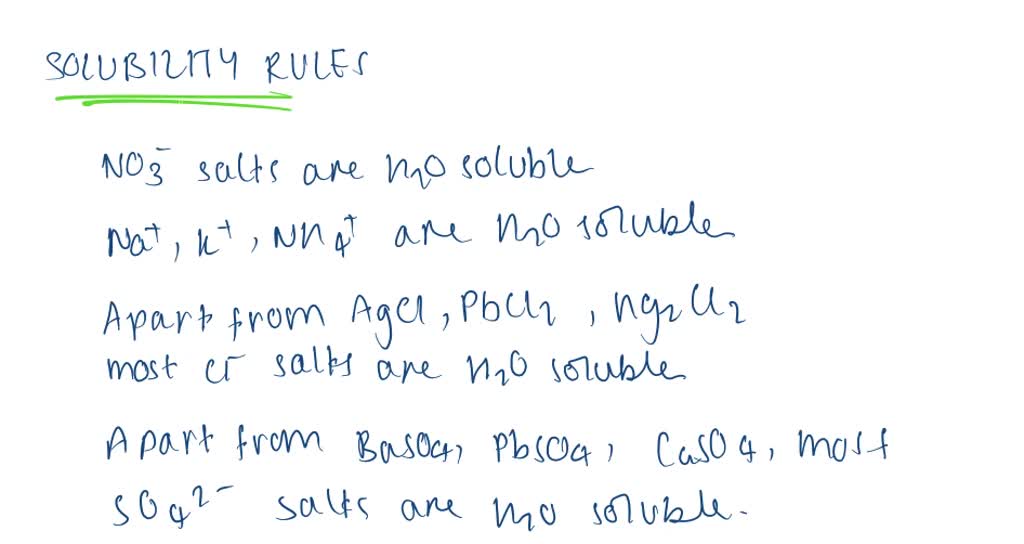 SOLUBILITY RULES
NO₃⁻ salts are H₂O soluble
Na⁺, K⁺, NH₄⁺ are H₂O soluble
Apart from AgCl, PbCl₂, Hg₂Cl₂
most Cl⁻ salts are H₂O soluble
Apart from BaSO₄, PbSO₄, CaSO₄, most
SO₄²⁻ salts are H₂O soluble.